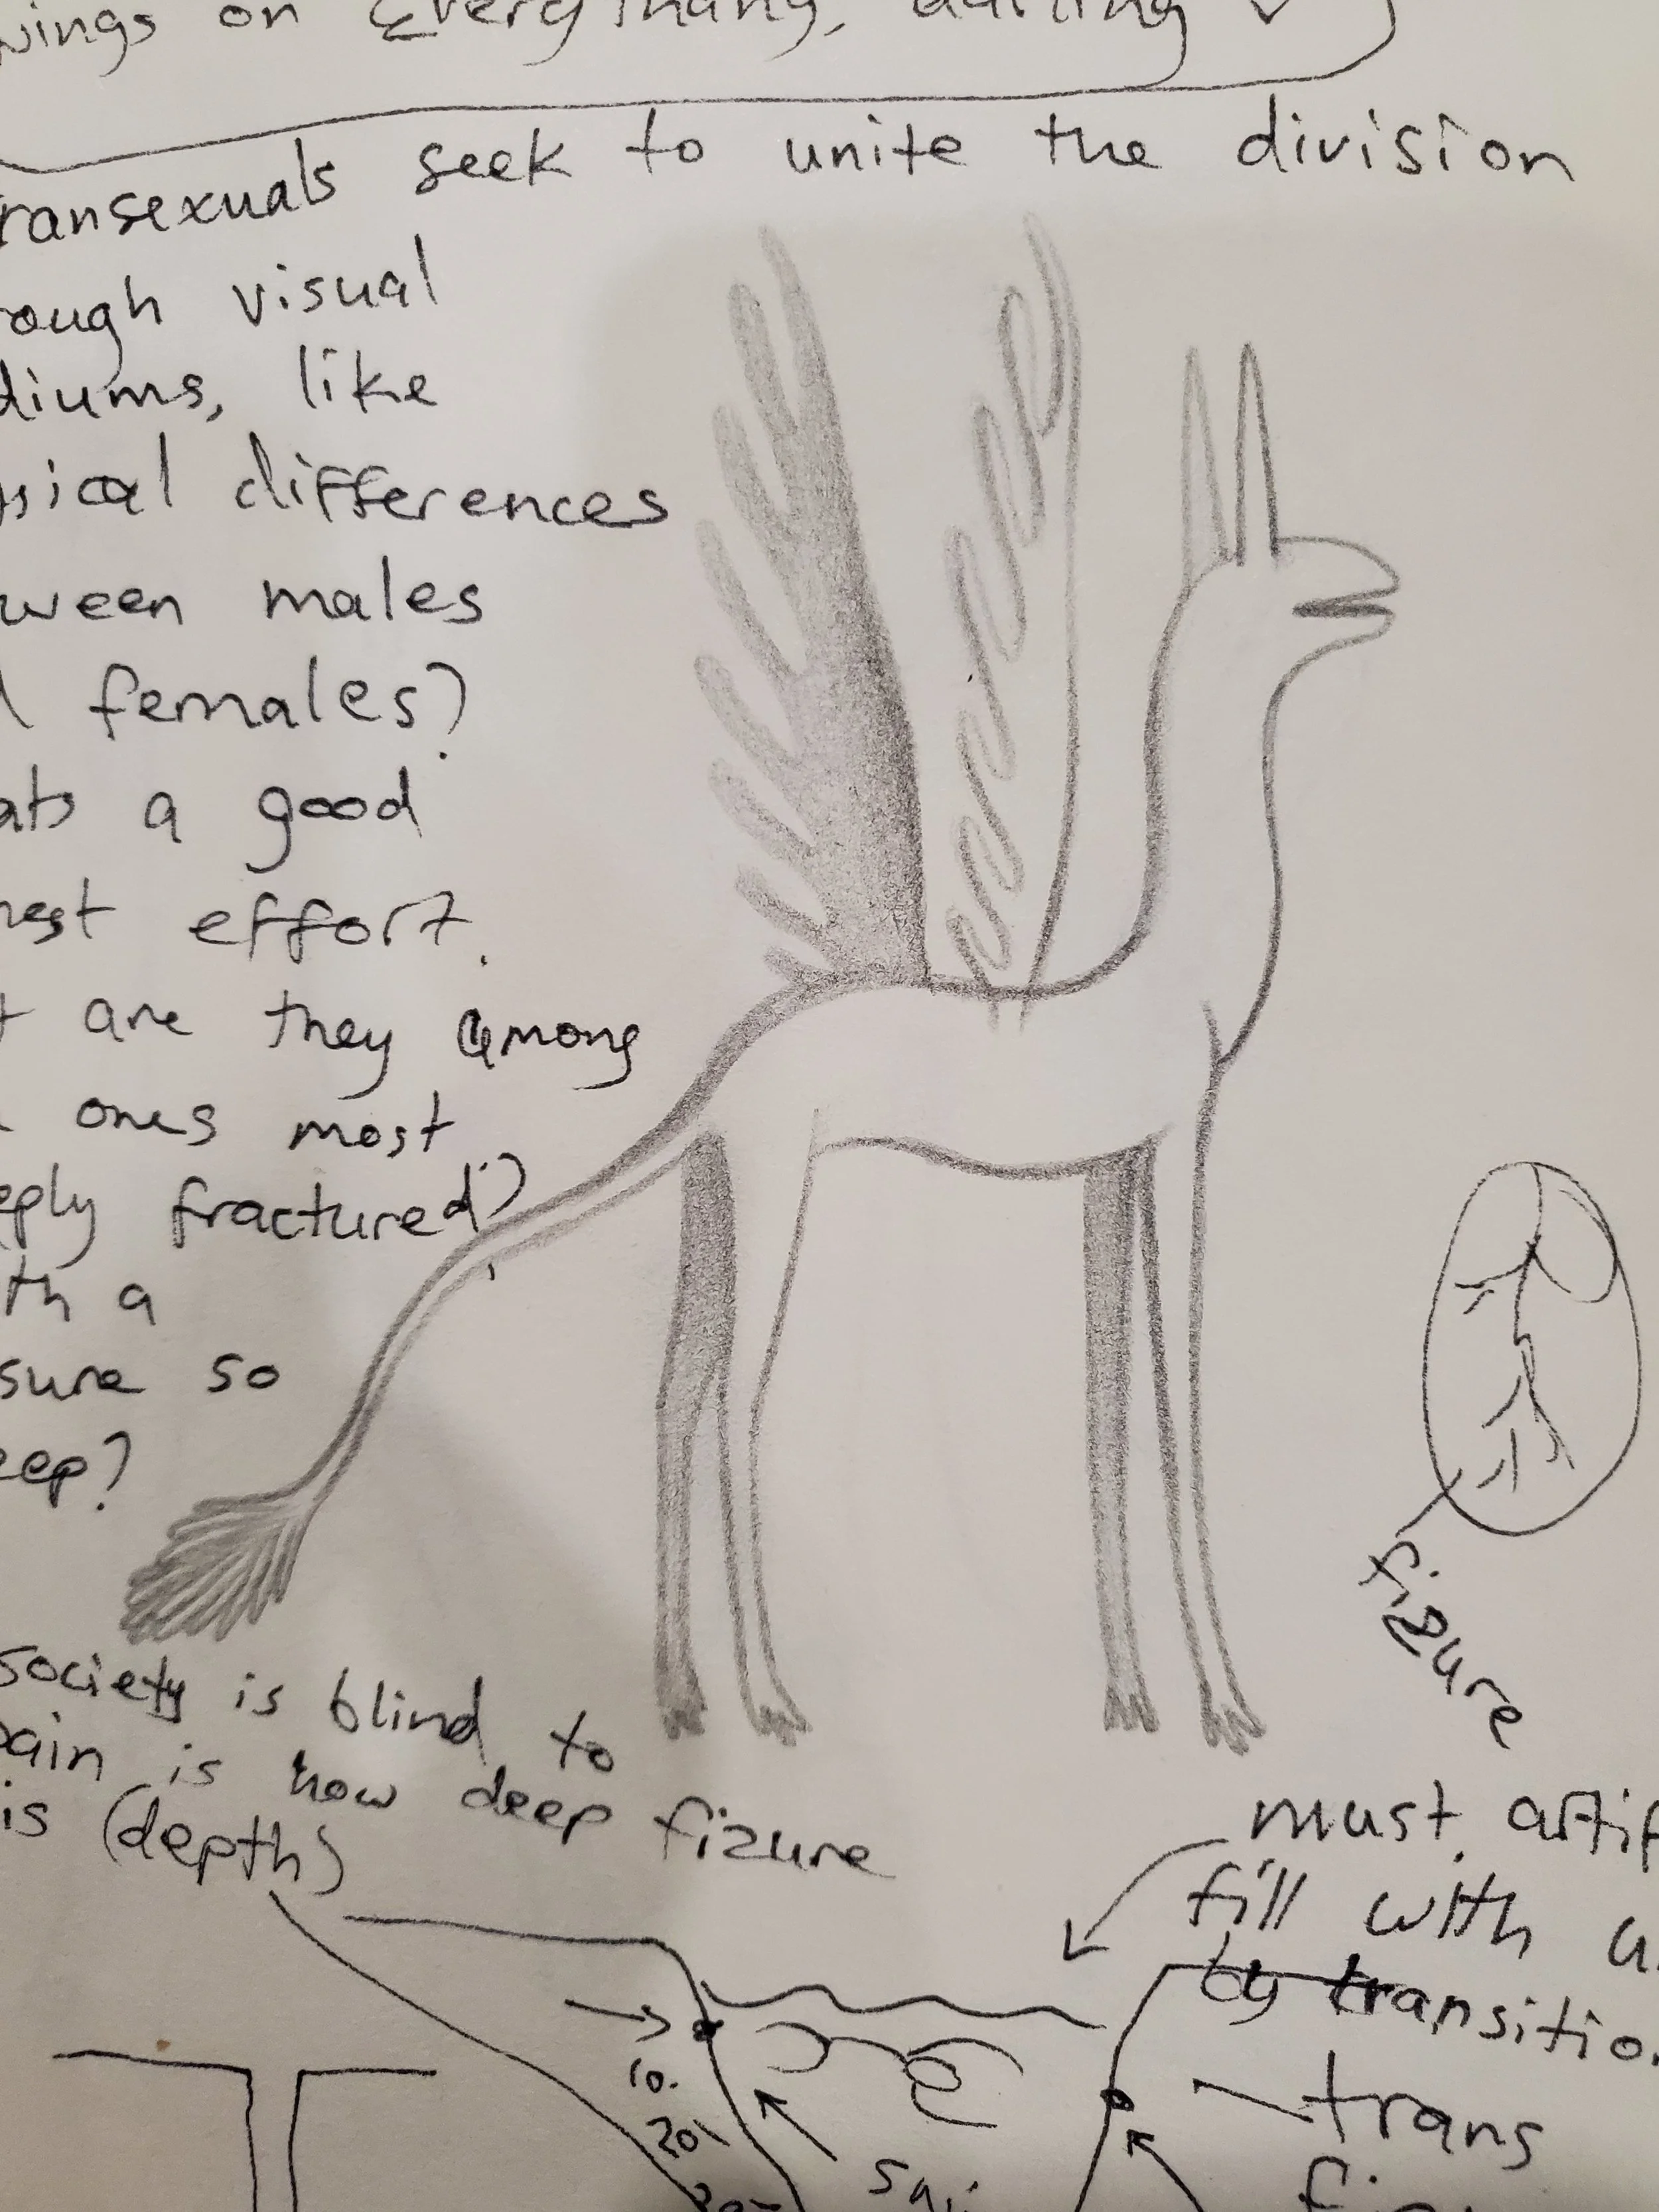 wings on Everythang, darling
ransexuals seek to unite the division
rough visual
diums, like
sical differences
ween males
females?
ats a good
nest effort.
t are they among
ones most
eply fractured?
th a
sure so
eep?
fizure
society is blind to
pain is how deep fizure
is (depth)
must artif
fill with
by transitio
10.
20
trans